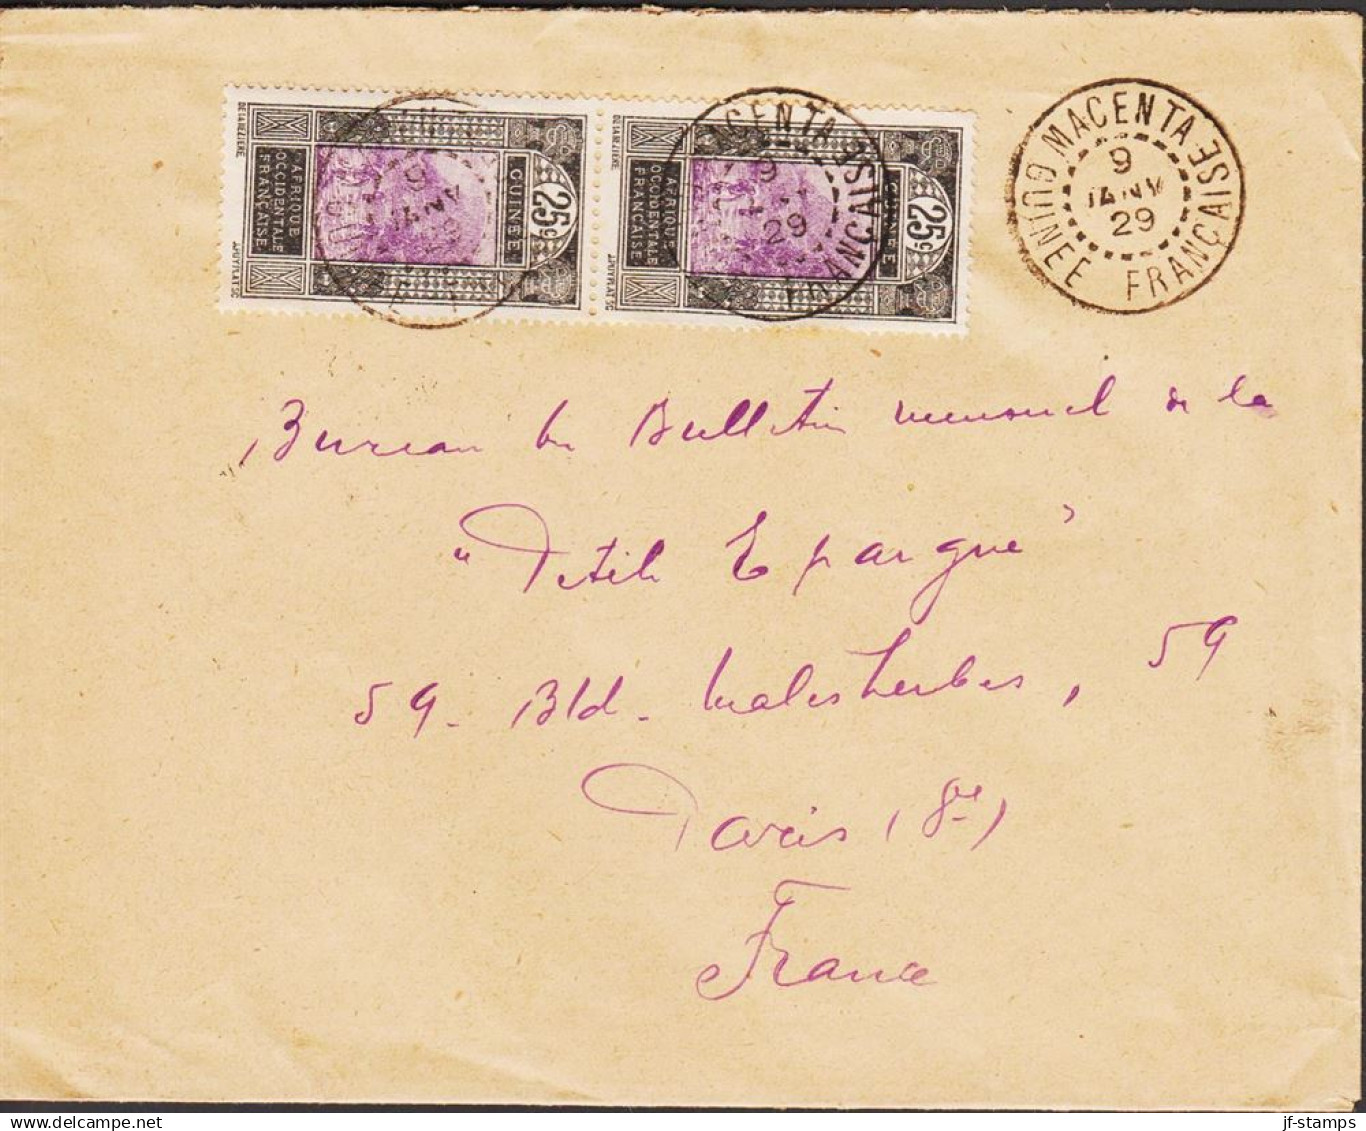 DE LA NEZIERE.
AFRIQUE
OCCIDENTALE
FRANÇAISE
GUINÉE
25c
AFRIQUE
OCCIDENTALE
FRANÇAISE
GUINÉE
25c
MACENTA
9
29
FRANÇAISE
MACENTA
9
JANV
29
GUINÉE FRANÇAISE
Bureau du Bulletin mensuel de la
"Petite Epargne"
59 - Bld - Malesherbes, 59
Paris (8e)
France
jf-stamps